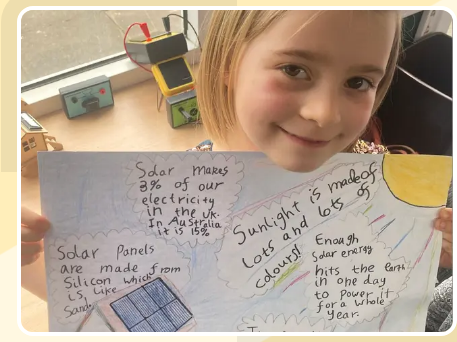 Solar makes
3% of our
electricity
in the UK.
In Australia
it is 15%
Sunlight is made of
lots and lots of
colours!
Solar Panels
are made from
Silicon which
is like
Sand
Enough
Solar energy
hits the Earth
in one day
to power it
for a whole
Year.